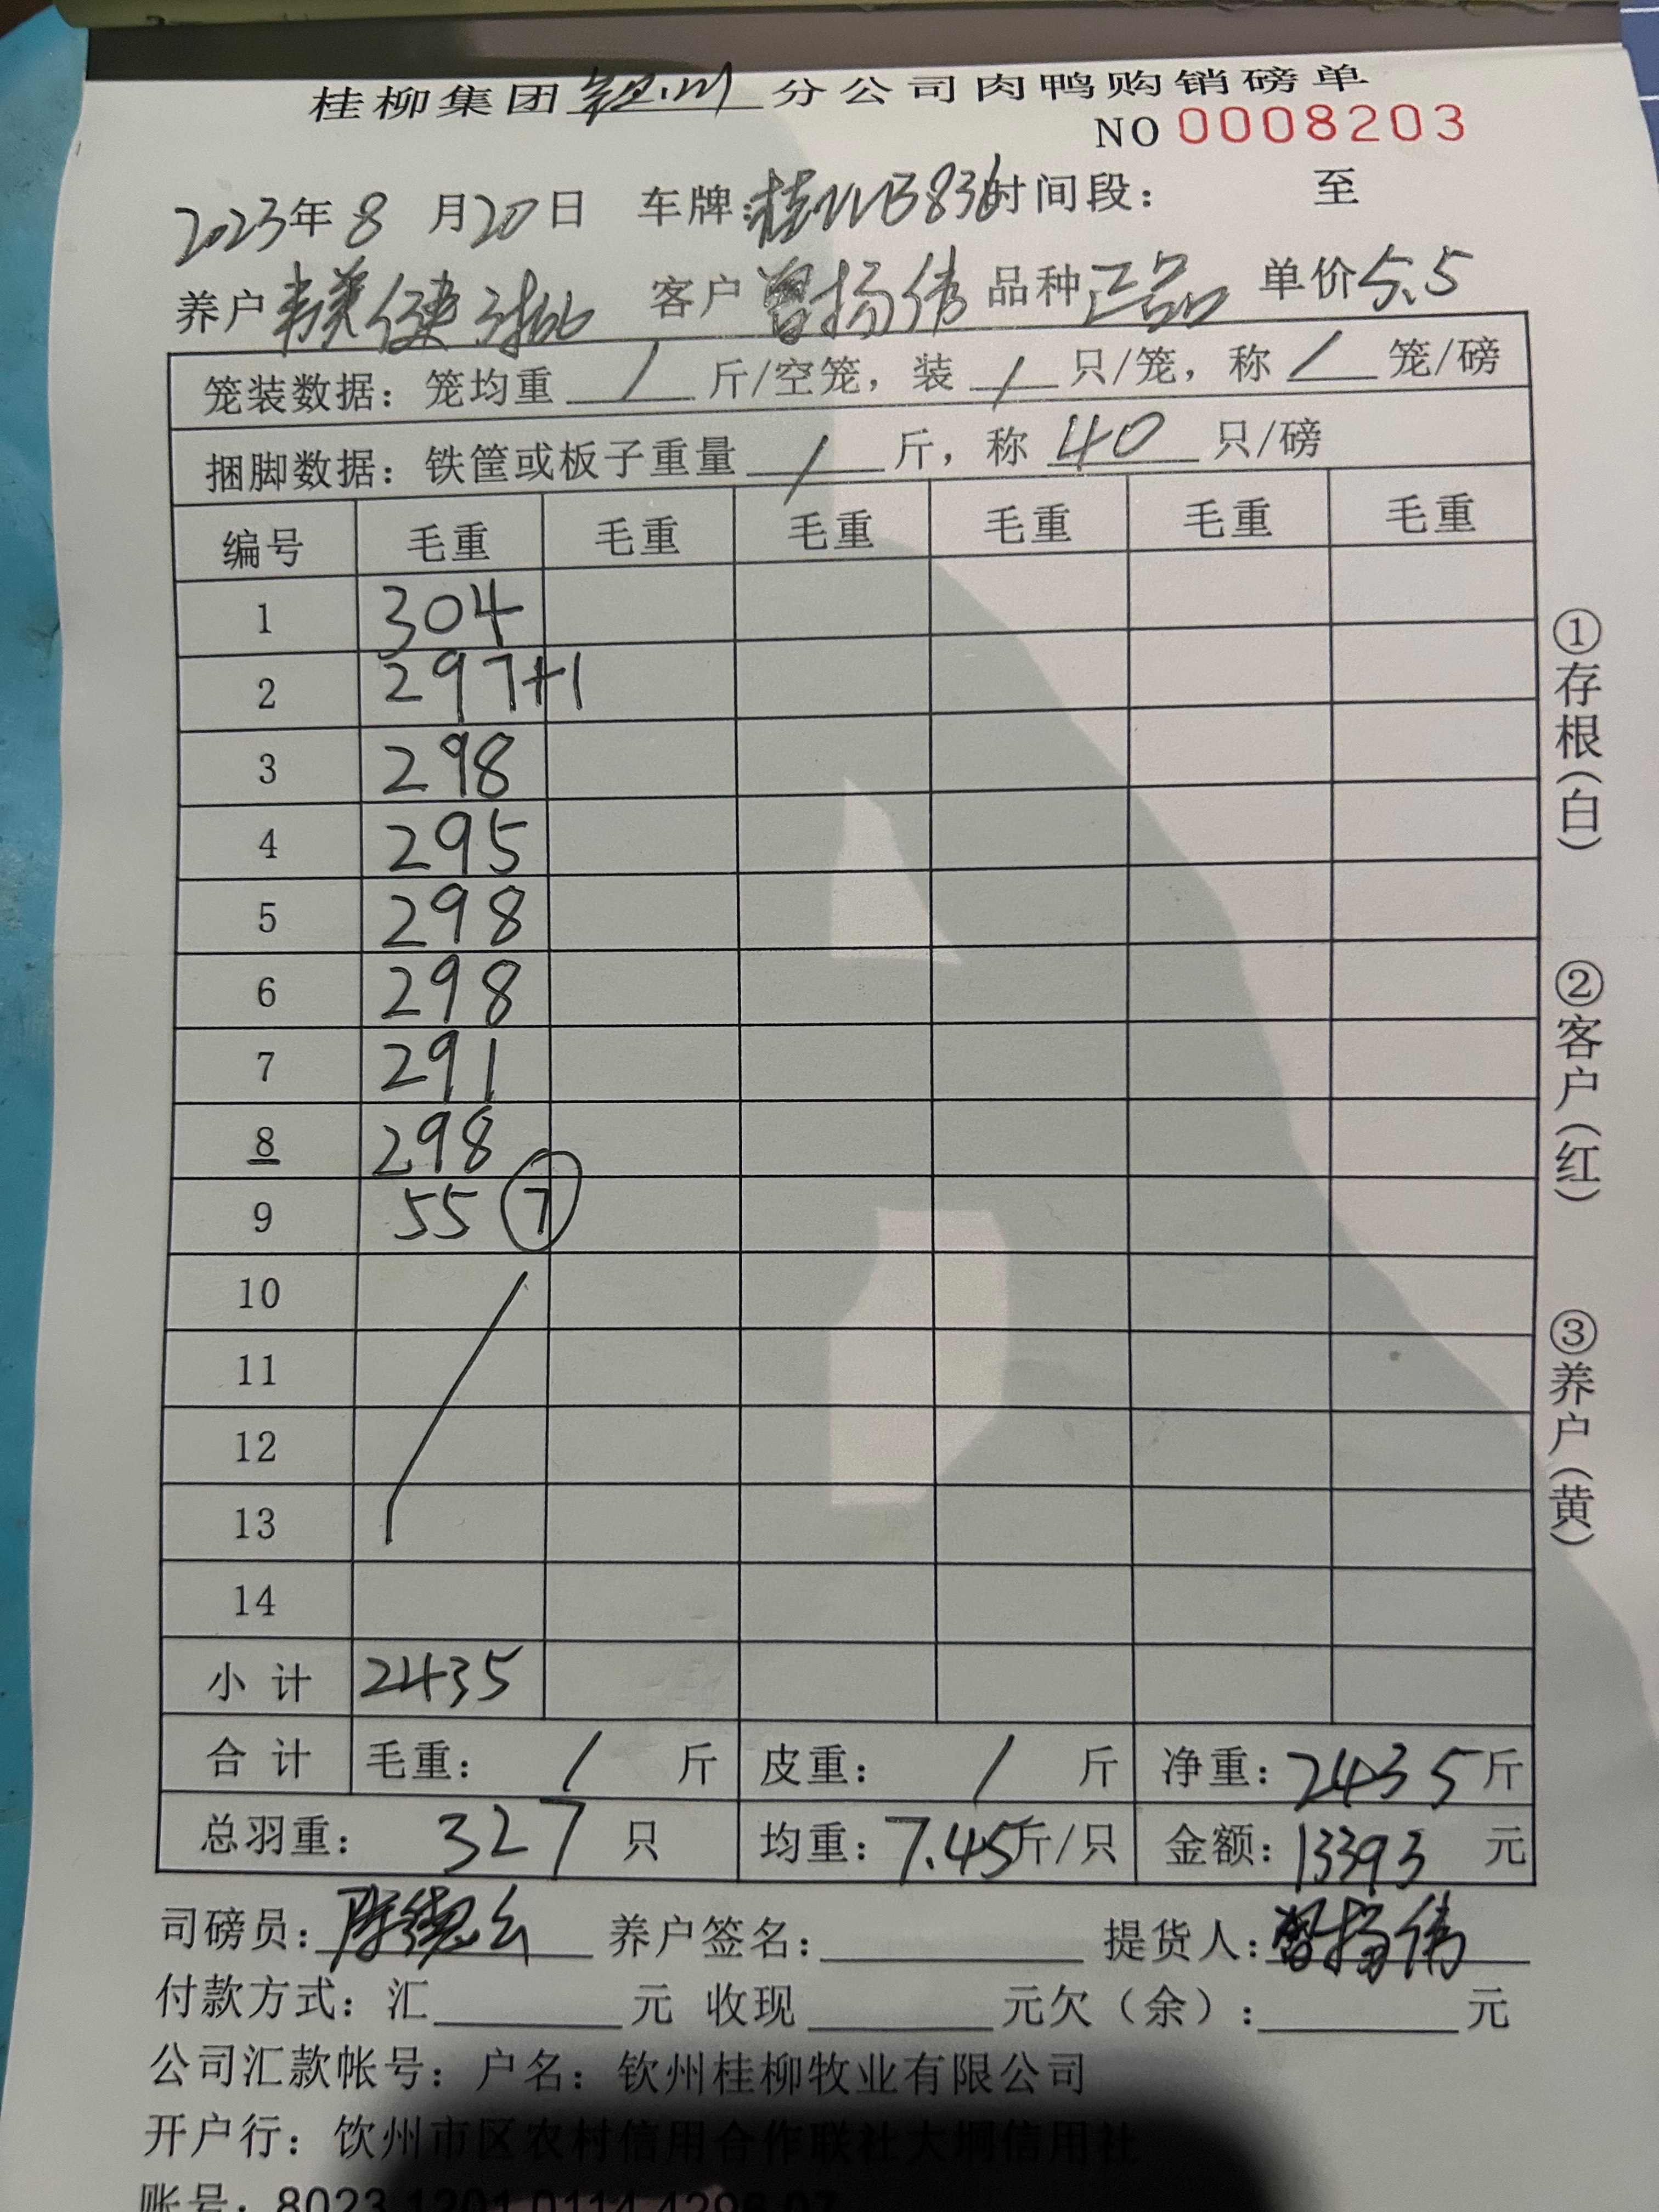 桂柳集团 分公司肉鸭购销磅单
NO 0008203
2023年8月20日 车牌: 时间段: 至
养户 客户 曾扬伟 品种 正品 单价 5.5
笼装数据: 笼均重 / 斤/空笼, 装 / 只/笼, 称 / 笼/磅
捆脚数据: 铁筐或板子重量 / 斤, 称 40 只/磅
编号 毛重 毛重 毛重 毛重 毛重 毛重
1 304
2 297+1
3 298
4 295
5 298
6 298
7 291
8 298
9 55 ⑦
10
11
12
13
14
小计 2435
合计 毛重: / 斤 皮重: / 斤 净重: 2435斤
总羽重: 327 只 均重: 7.45斤/只 金额: 13393 元
①存根(白)
②客户(红)
③养户(黄)
司磅员: 养户签名: 提货人: 曾扬伟
付款方式: 汇 元 收现 元欠(余): 元
公司汇款帐号: 户名: 钦州桂柳牧业有限公司
开户行: 钦州市区农村信用合作联社大垌信用社
账号: 8023 1201 0114 4296 07